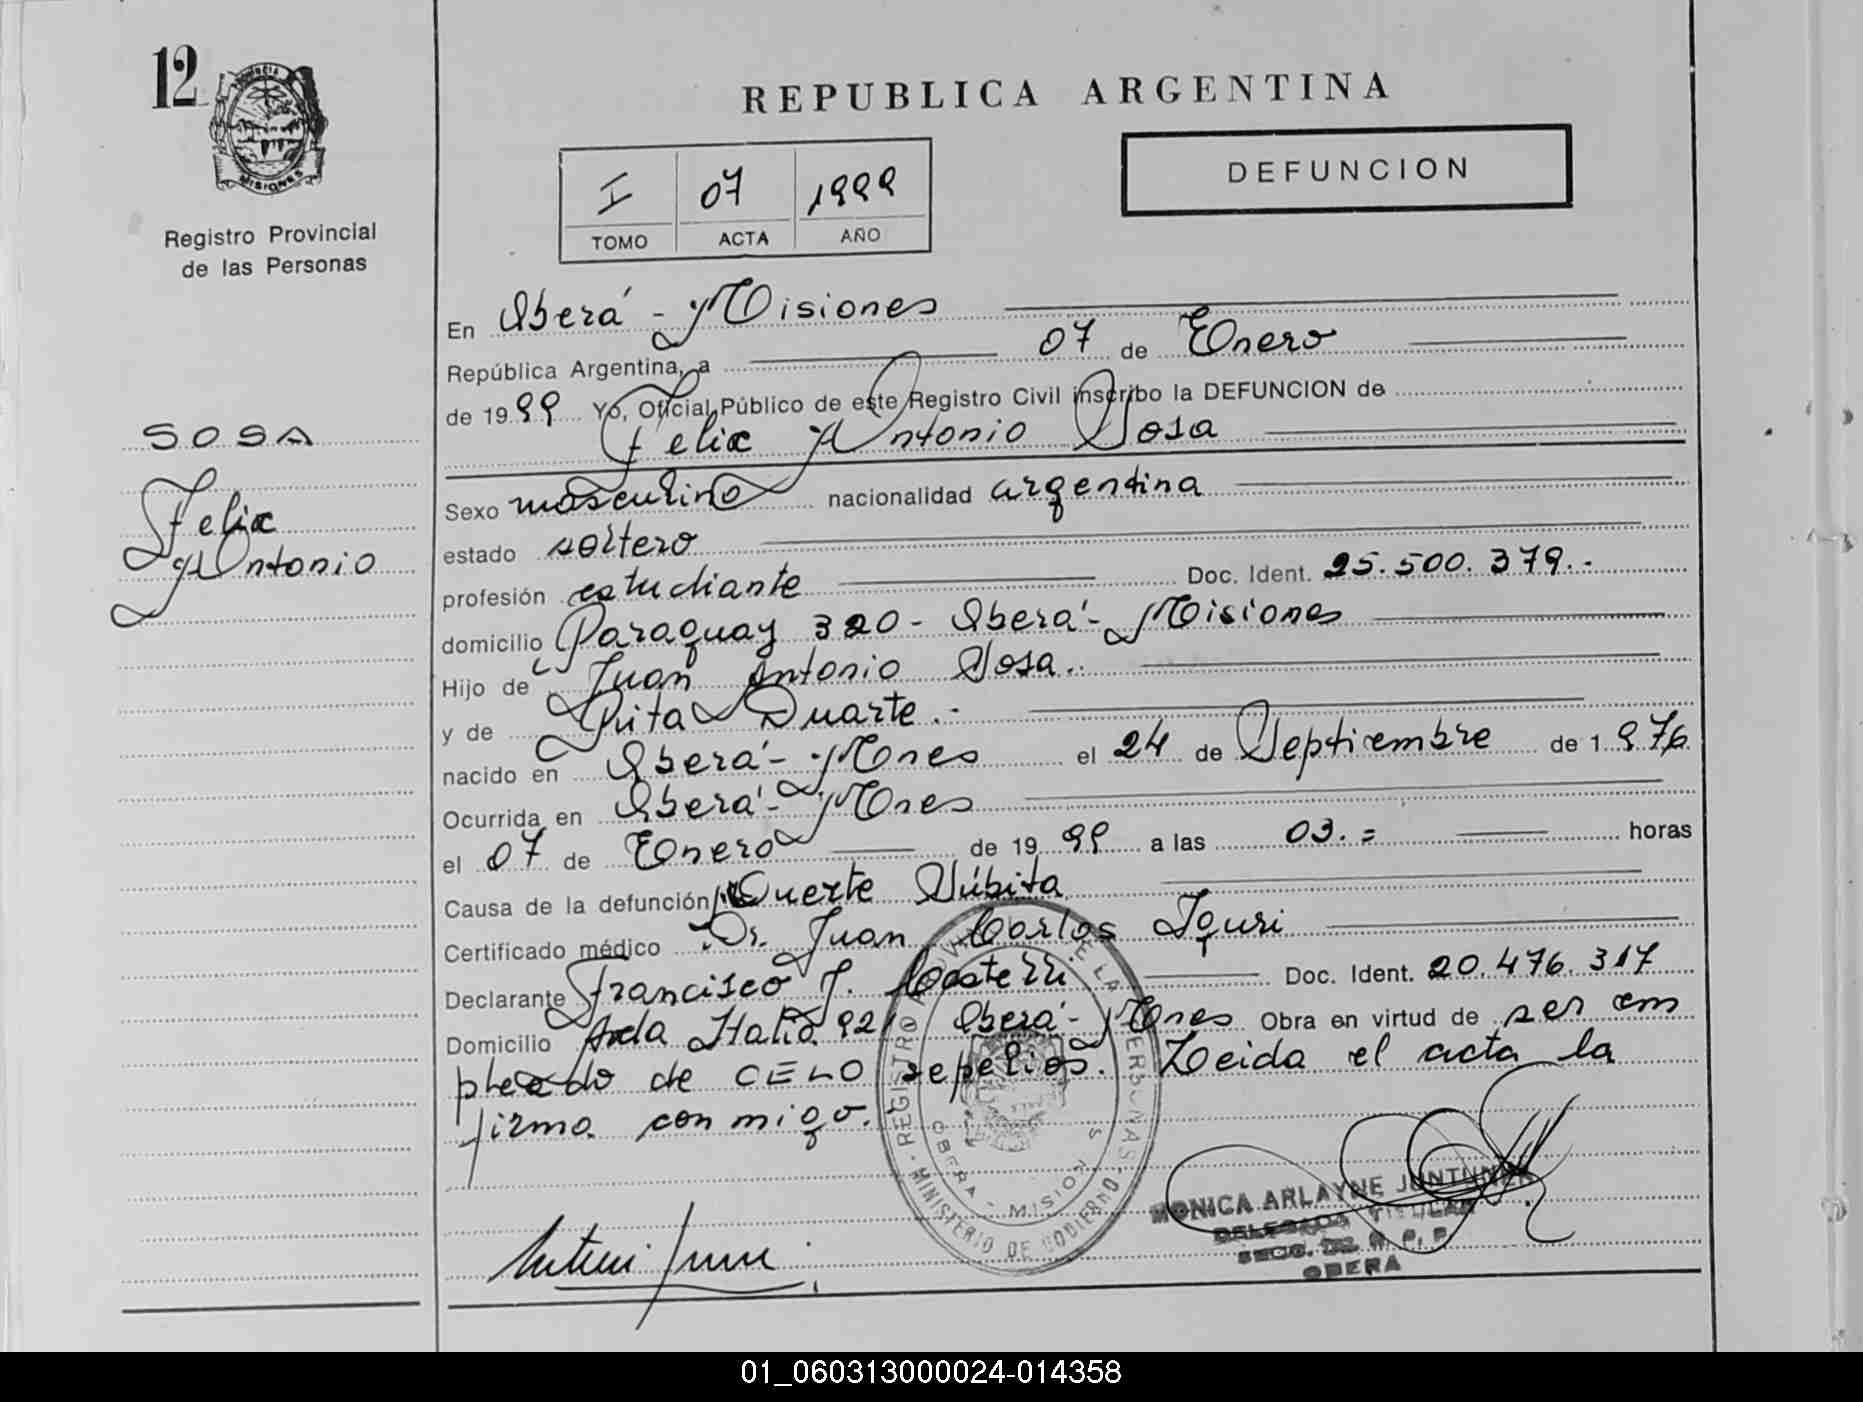 12
PROVINCIA DE
MISIONES
Registro Provincial
de las Personas
SOSA
Felix
Antonio
REPUBLICA ARGENTINA
I 07 1999
TOMO ACTA AÑO
DEFUNCION
En Oberá - Misiones
República Argentina, a 07 de Enero
de 1999 Yo, Oficial Público de este Registro Civil inscribo la DEFUNCION de
Felix Antonio Sosa
Sexo masculino nacionalidad argentina
estado soltero
profesión estudiante Doc. Ident. 25.500.379.-
domicilio Paraguay 320 - Oberá - Misiones
Hijo de Juan Antonio Sosa.
y de Rita Duarte.-
nacido en Oberá - Mnes el 24 de Septiembre de 1976
Ocurrida en Oberá - Mnes
el 07 de Enero de 1999 a las 03.= horas
Causa de la defunción Muerte Súbita
Certificado médico Dr. Juan Carlos Iguri
Declarante Francisco J. Doc. Ident. 20.476.317
Domicilio Avda Italia 92 Oberá - Mnes Obra en virtud de ser em
pleado de CELO sepelios. Leida el acta la
firma conmigo.
REGISTRO PROVINCIAL DE LAS PERSONAS - MINISTERIO DE GOBIERNO
OBERA - MISIONES
MONICA ARLAYNE
DELEGADA TITULAR
SECC. DEL R. P. P.
OBERA
01_060313000024-014358